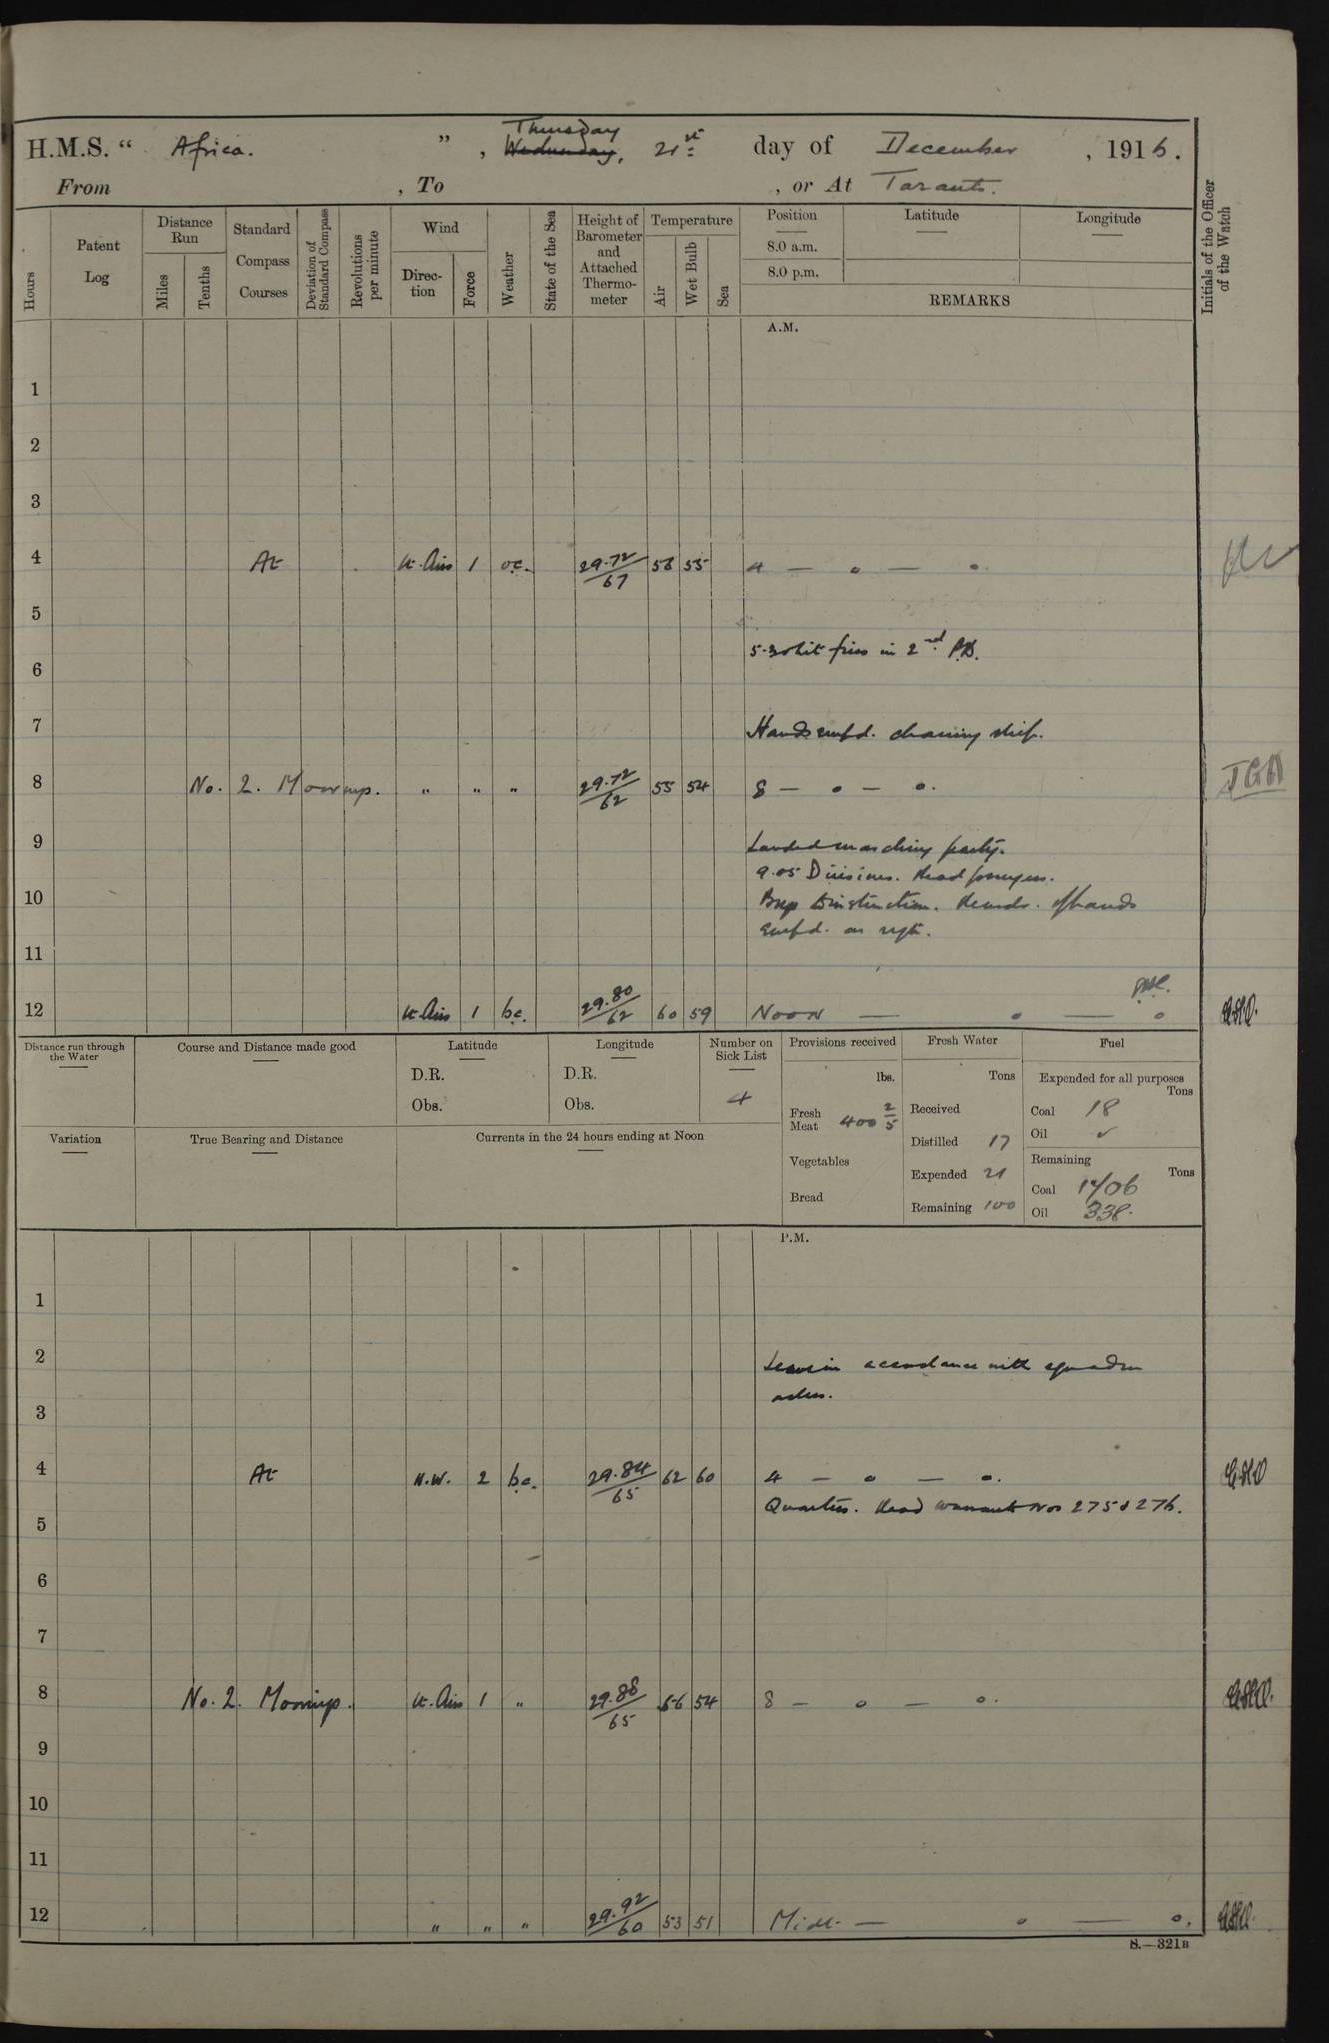 Thursday
H.M.S. “ Africa. ” , Wednesday, 21st day of December , 1916.
From , To , or At Taranto.
Hours
Patent Log
Distance Run
Miles
Tenths
Standard Compass Courses
Deviation of Standard Compass
Revolutions per minute
Wind
Direc-tion
Force
Weather
State of the Sea
Height of Barometer and Attached Thermo-meter
Temperature
Air
Wet Bulb
Sea
Position
8.0 a.m.
8.0 p.m.
Latitude
Longitude
REMARKS
Initials of the Officer of the Watch
A.M.
1
2
3
4 At Lt. Airs 1 o.c. 29.72/67 56 55 4 — o — o
5
5.30 Lit fires in 2nd P.B.
6
7
Hands empd. cleaning ship.
8 No. 2. Moorings. " " " 29.72/62 55 54 8 — o — o.
9
Landed marching party.
9.05 Divisions. Read prayers.
10
instruction. hands
empd. as reqte.
11
12 Lt. Airs 1 b.c. 29.80/62 60 59 Noon — o — o
Distance run through the Water
Course and Distance made good
Latitude
D.R.
Obs.
Longitude
D.R.
Obs.
Number on Sick List
4
Provisions received
lbs.
Fresh Meat 400 2/5
Vegetables
Bread
Fresh Water
Tons
Received
Distilled 17
Expended 21
Remaining 100
Fuel
Expended for all purposes
Tons
Coal 18
Oil ✓
Remaining
Tons
Coal 1706
Oil 338.
Variation
True Bearing and Distance
Currents in the 24 hours ending at Noon
P.M.
1
2
Leave in accordance with squadron
orders.
3
4 At N.W. 2 b.c. 29.84/65 62 60 4 — o — o.
Quarters. Read warrants Nos 275 & 276.
5
6
7
8 No. 2. Moorings. Lt. Airs 1 " 29.88/65 56 54 8 — o — o.
9
10
11
12 " " " 29.92/60 53 51 Midt. — o — o.
S.—321B